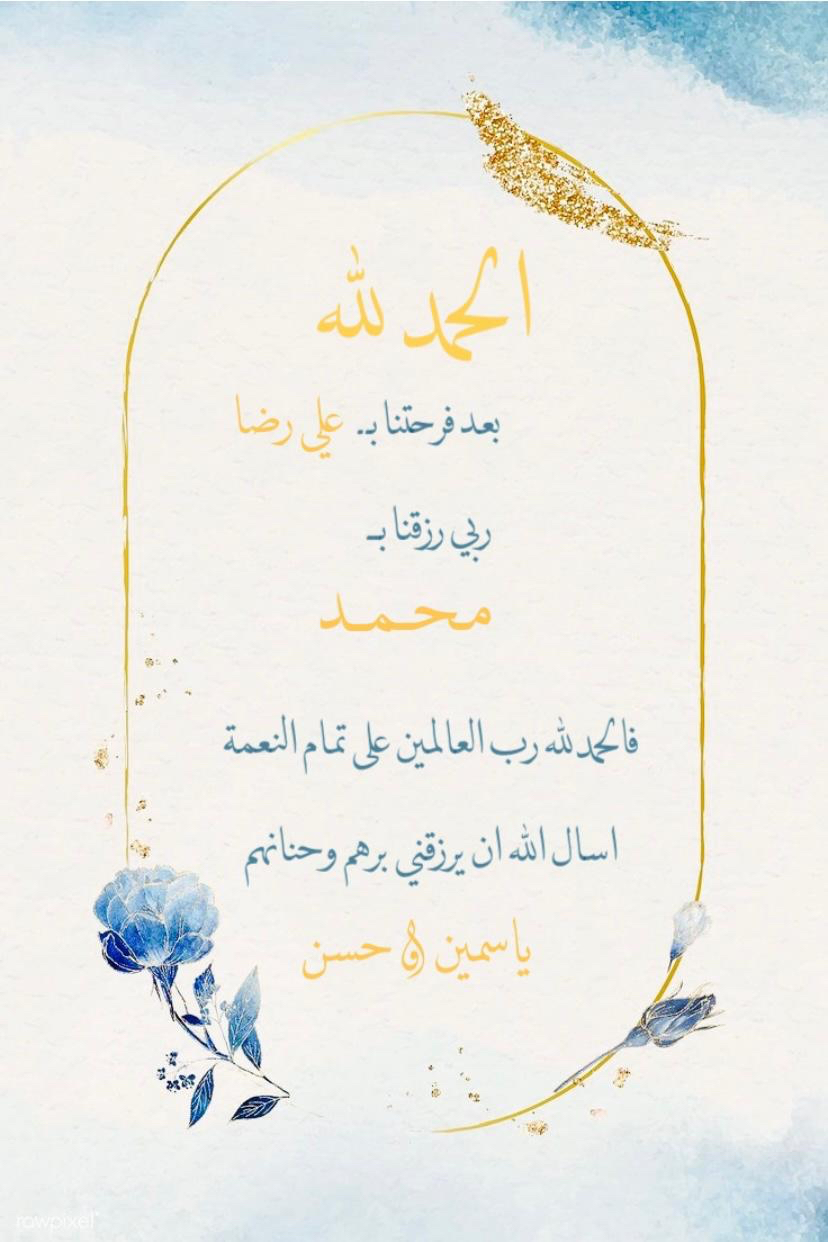 الحمد لله
بعد فرحتنا بـ.. علي رضا
ربي رزقنا بـ
محمد
فالحمدلله رب العالمين على تمام النعمة
اسال الله ان يرزقني برهم وحنانهم
ياسمين و حسن
rawpixel